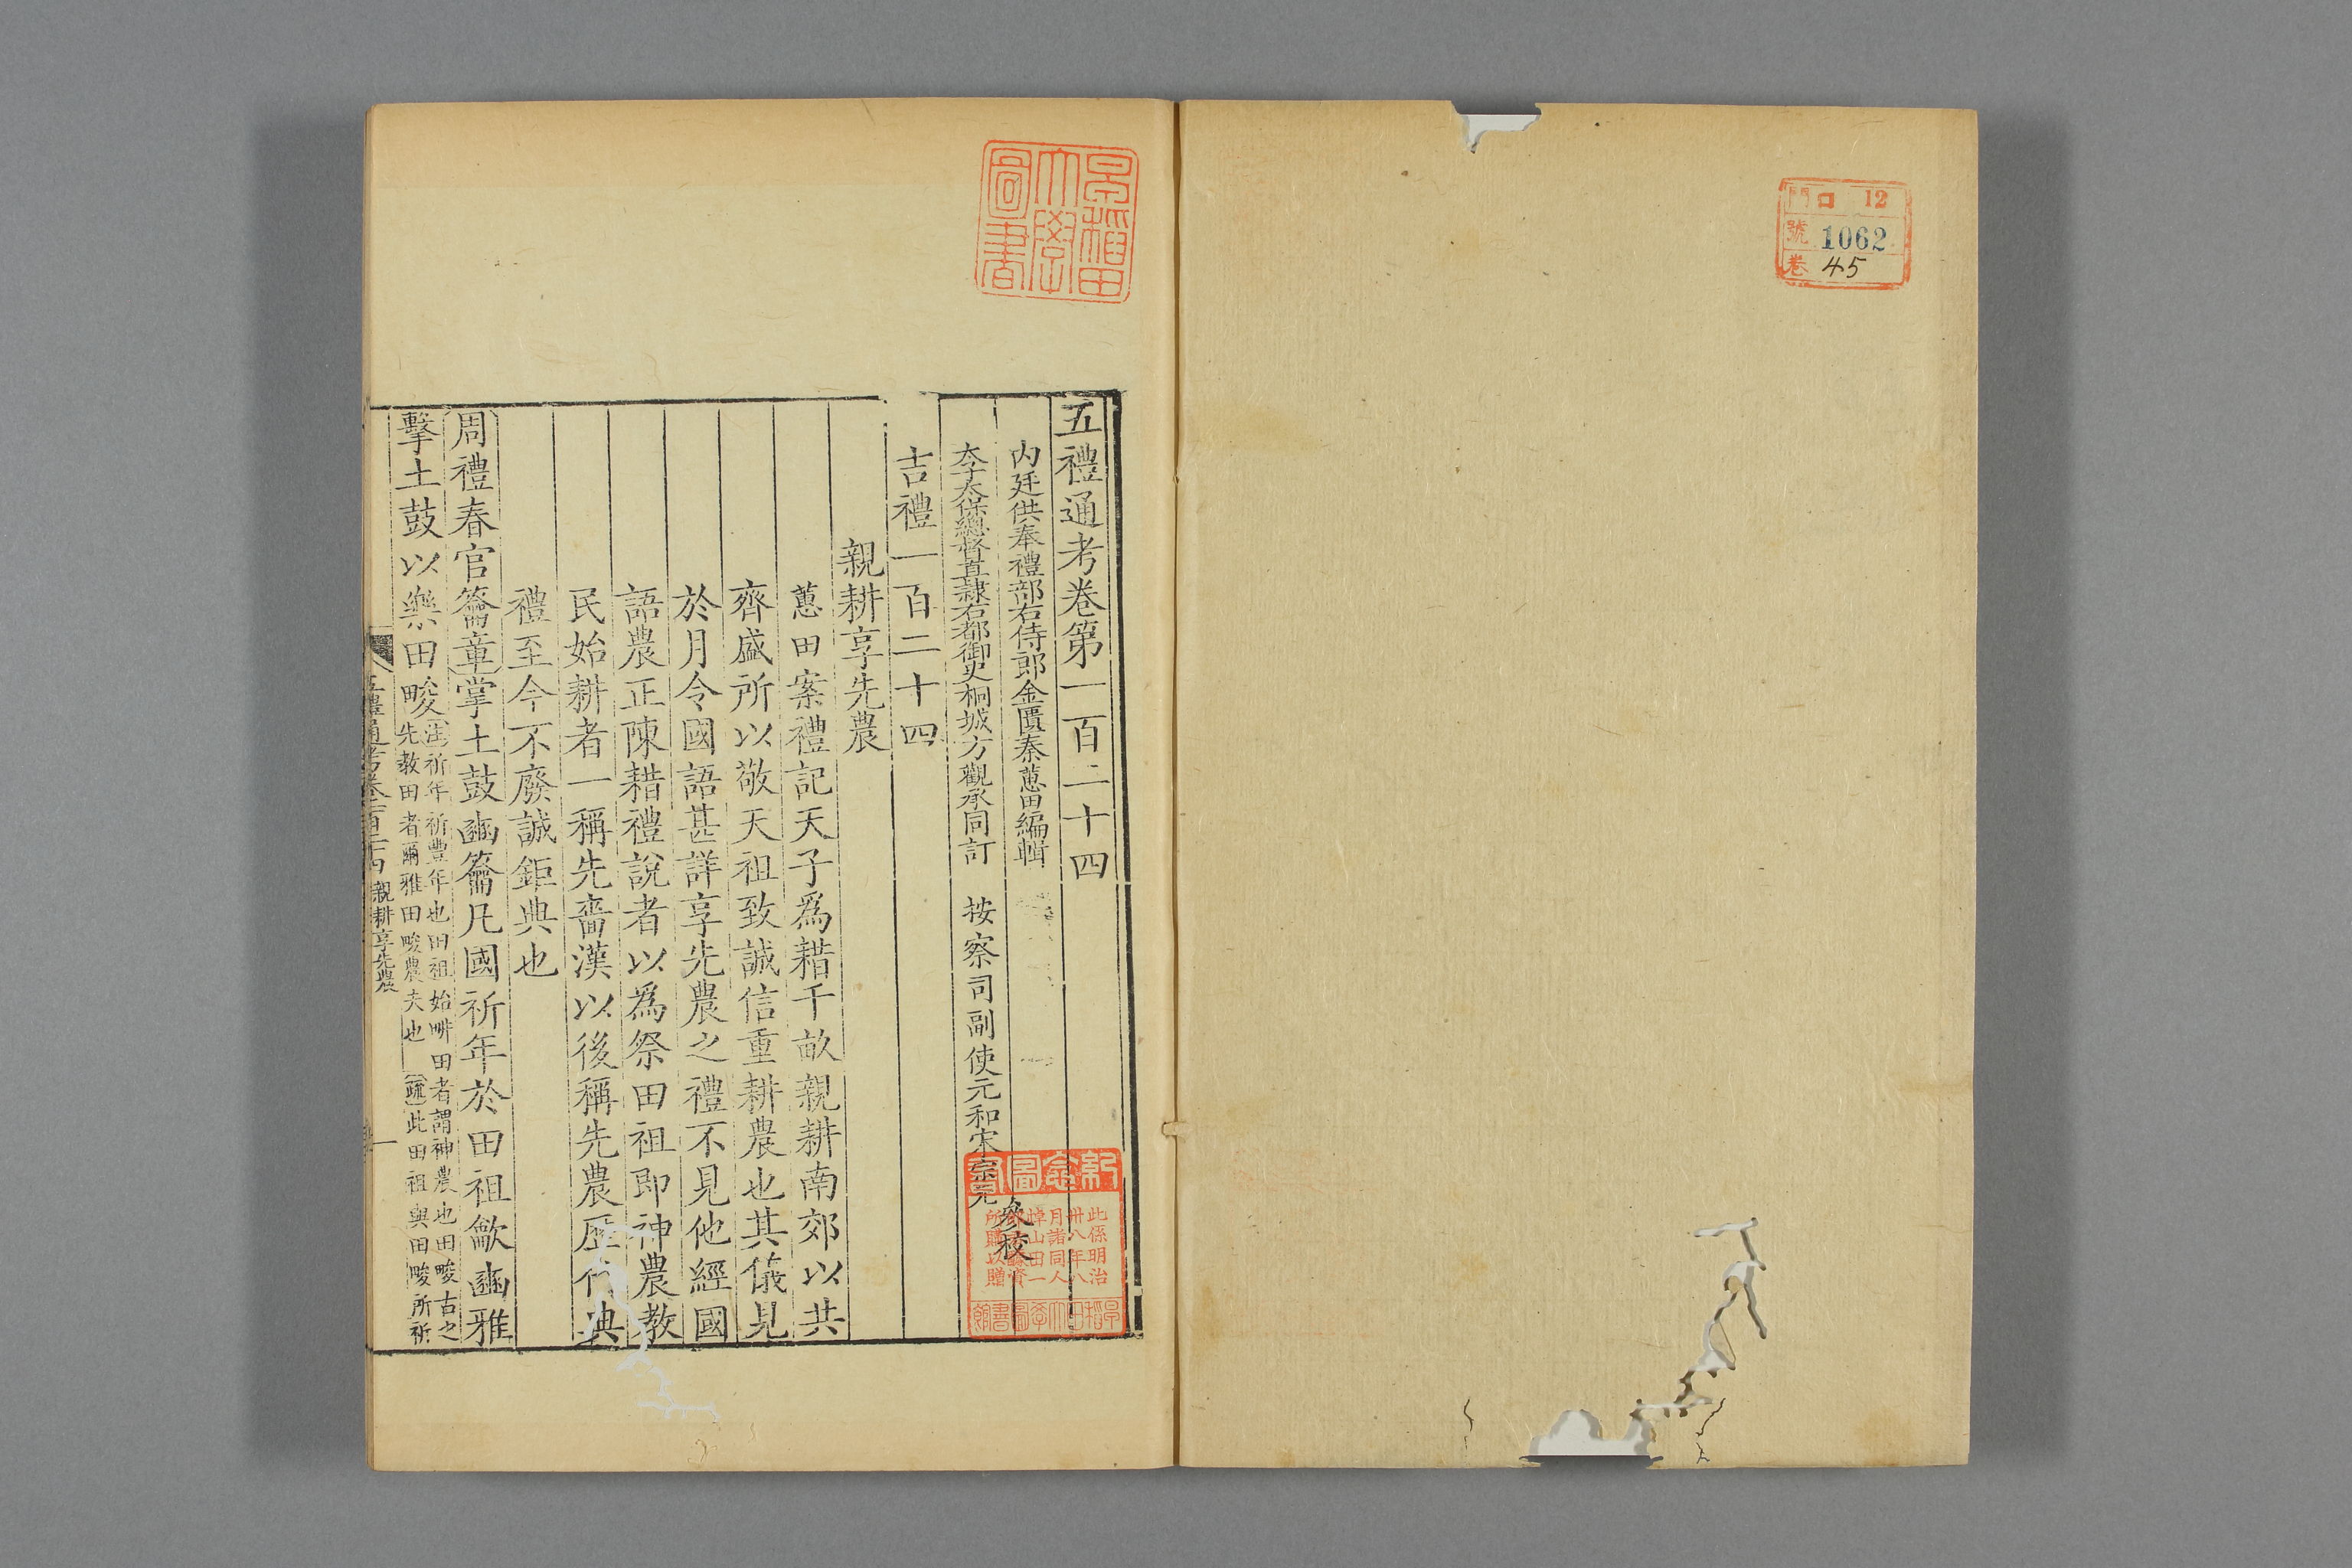 門 口 12
號 1062
卷 45
早稲田大學圖書
五禮通考卷第一百二十四
内廷供奉禮部右侍郎金匱秦蕙田編輯
太子太保總督直隸右都御史桐城方觀承同訂 按察司副使元和宋宗元
參校
吉禮一百二十四
親耕享先農
蕙田案禮記天子爲耤千畝親耕南郊以共
齊盛所以敬天祖致誠信重耕農也其儀見
於月令國語甚詳享先農之禮不見他經國
語農正陳耤禮說者以爲祭田祖即神農教
民始耕者一稱先嗇漢以後稱先農歷代典
禮至今不廢誠鉅典也
周禮春官籥章掌土鼓豳籥凡國祈年於田祖龡豳雅
擊土鼓以樂田畯注祈年祈豐年也田祖始耕田者謂神農也田畯古之
先教田者爾雅田畯農夫也 疏此田祖與田畯所祈
五禮通考卷一百二十四 親耕享先農 一
紀念圖書
此係明治
卅八年八
月諸同人
悼山田一
所購以贈
早稲田大學圖書館